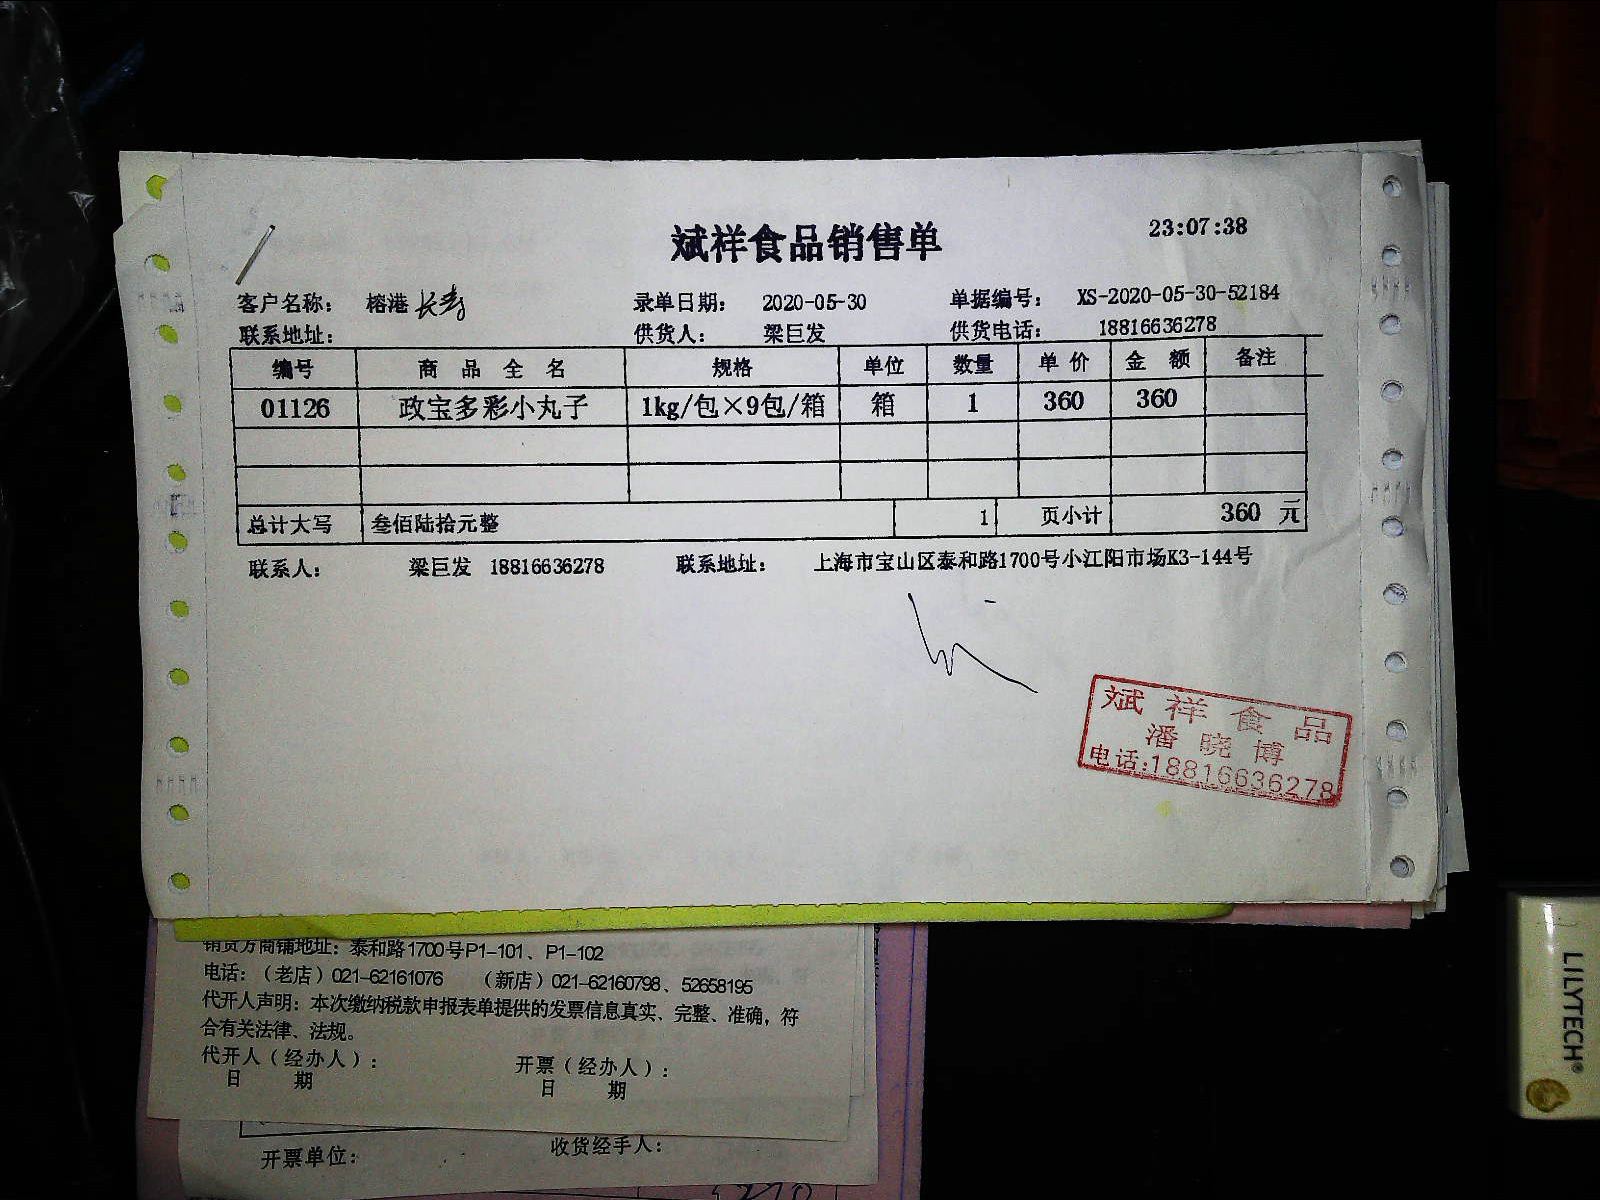 斌祥食品销售单
23:07:38
客户名称： 榕港 长寿 录单日期： 2020-05-30 单据编号： XS-2020-05-30-52184
联系地址： 供货人： 梁巨发 供货电话： 18816636278
编号 商品全名 规格 单位 数量 单价 金额 备注
01126 政宝多彩小丸子 1kg/包×9包/箱 箱 1 360 360
总计大写 叁佰陆拾元整 1 页小计 360 元
联系人： 梁巨发 18816636278 联系地址： 上海市宝山区泰和路1700号小江阳市场K3-144号
斌祥食品
潘晓博
电话:18816636278
销货方商铺地址：泰和路1700号P1-101、P1-102
电话：（老店）021-62161076 （新店）021-62160798、52658195
代开人声明：本次缴纳税款申报表单提供的发票信息真实、完整、准确，符
合有关法律、法规。
代开人（经办人）： 开票（经办人）：
日 期 日 期
开票单位： 收货经手人：
LILYTECH®